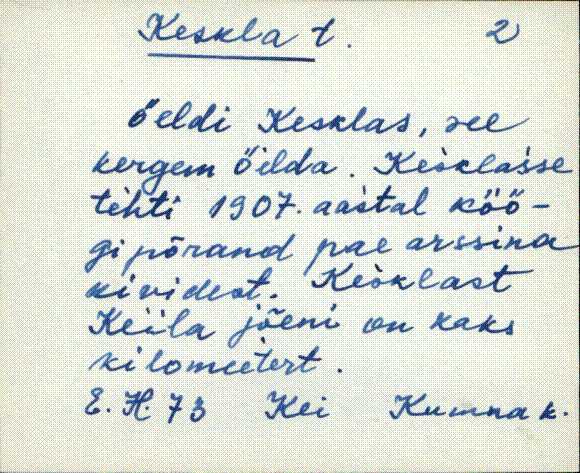 Keskla t. 2
őeldi Kesklas, see
kergem őilda. Kèsklàsse
tèhti 1907. aastal köö-
gi põrand pae arssina
kividest. Kèsklast
Keila jõeni on kaks
kilomeetert.
E. H. 73 Kei Kumna k.